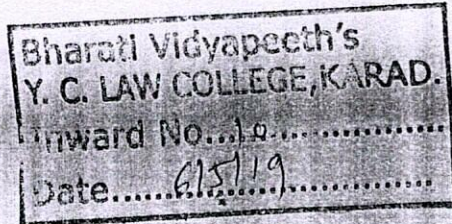 Bharati Vidyapeeth's
Y. C. LAW COLLEGE, KARAD.
Inward No...10..................
Date......6/5/19......................